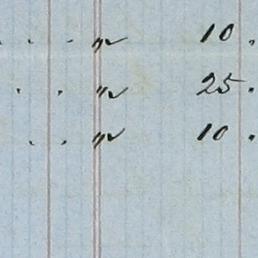 . . . " 10 .
. . " 25 .
. . " 10 .